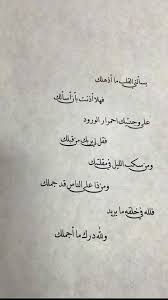 يسألني القلب ما أذهلك
فهلا أذنت بأن أسألك
على وجنتيك احمرار الورود
فقل لي بربك من قبلك
ومن سكب الليل في مقلتيك
ومن ذا على الناس قد جملك
فلله في خلقه ما يريد
ولله درك ما أجملك